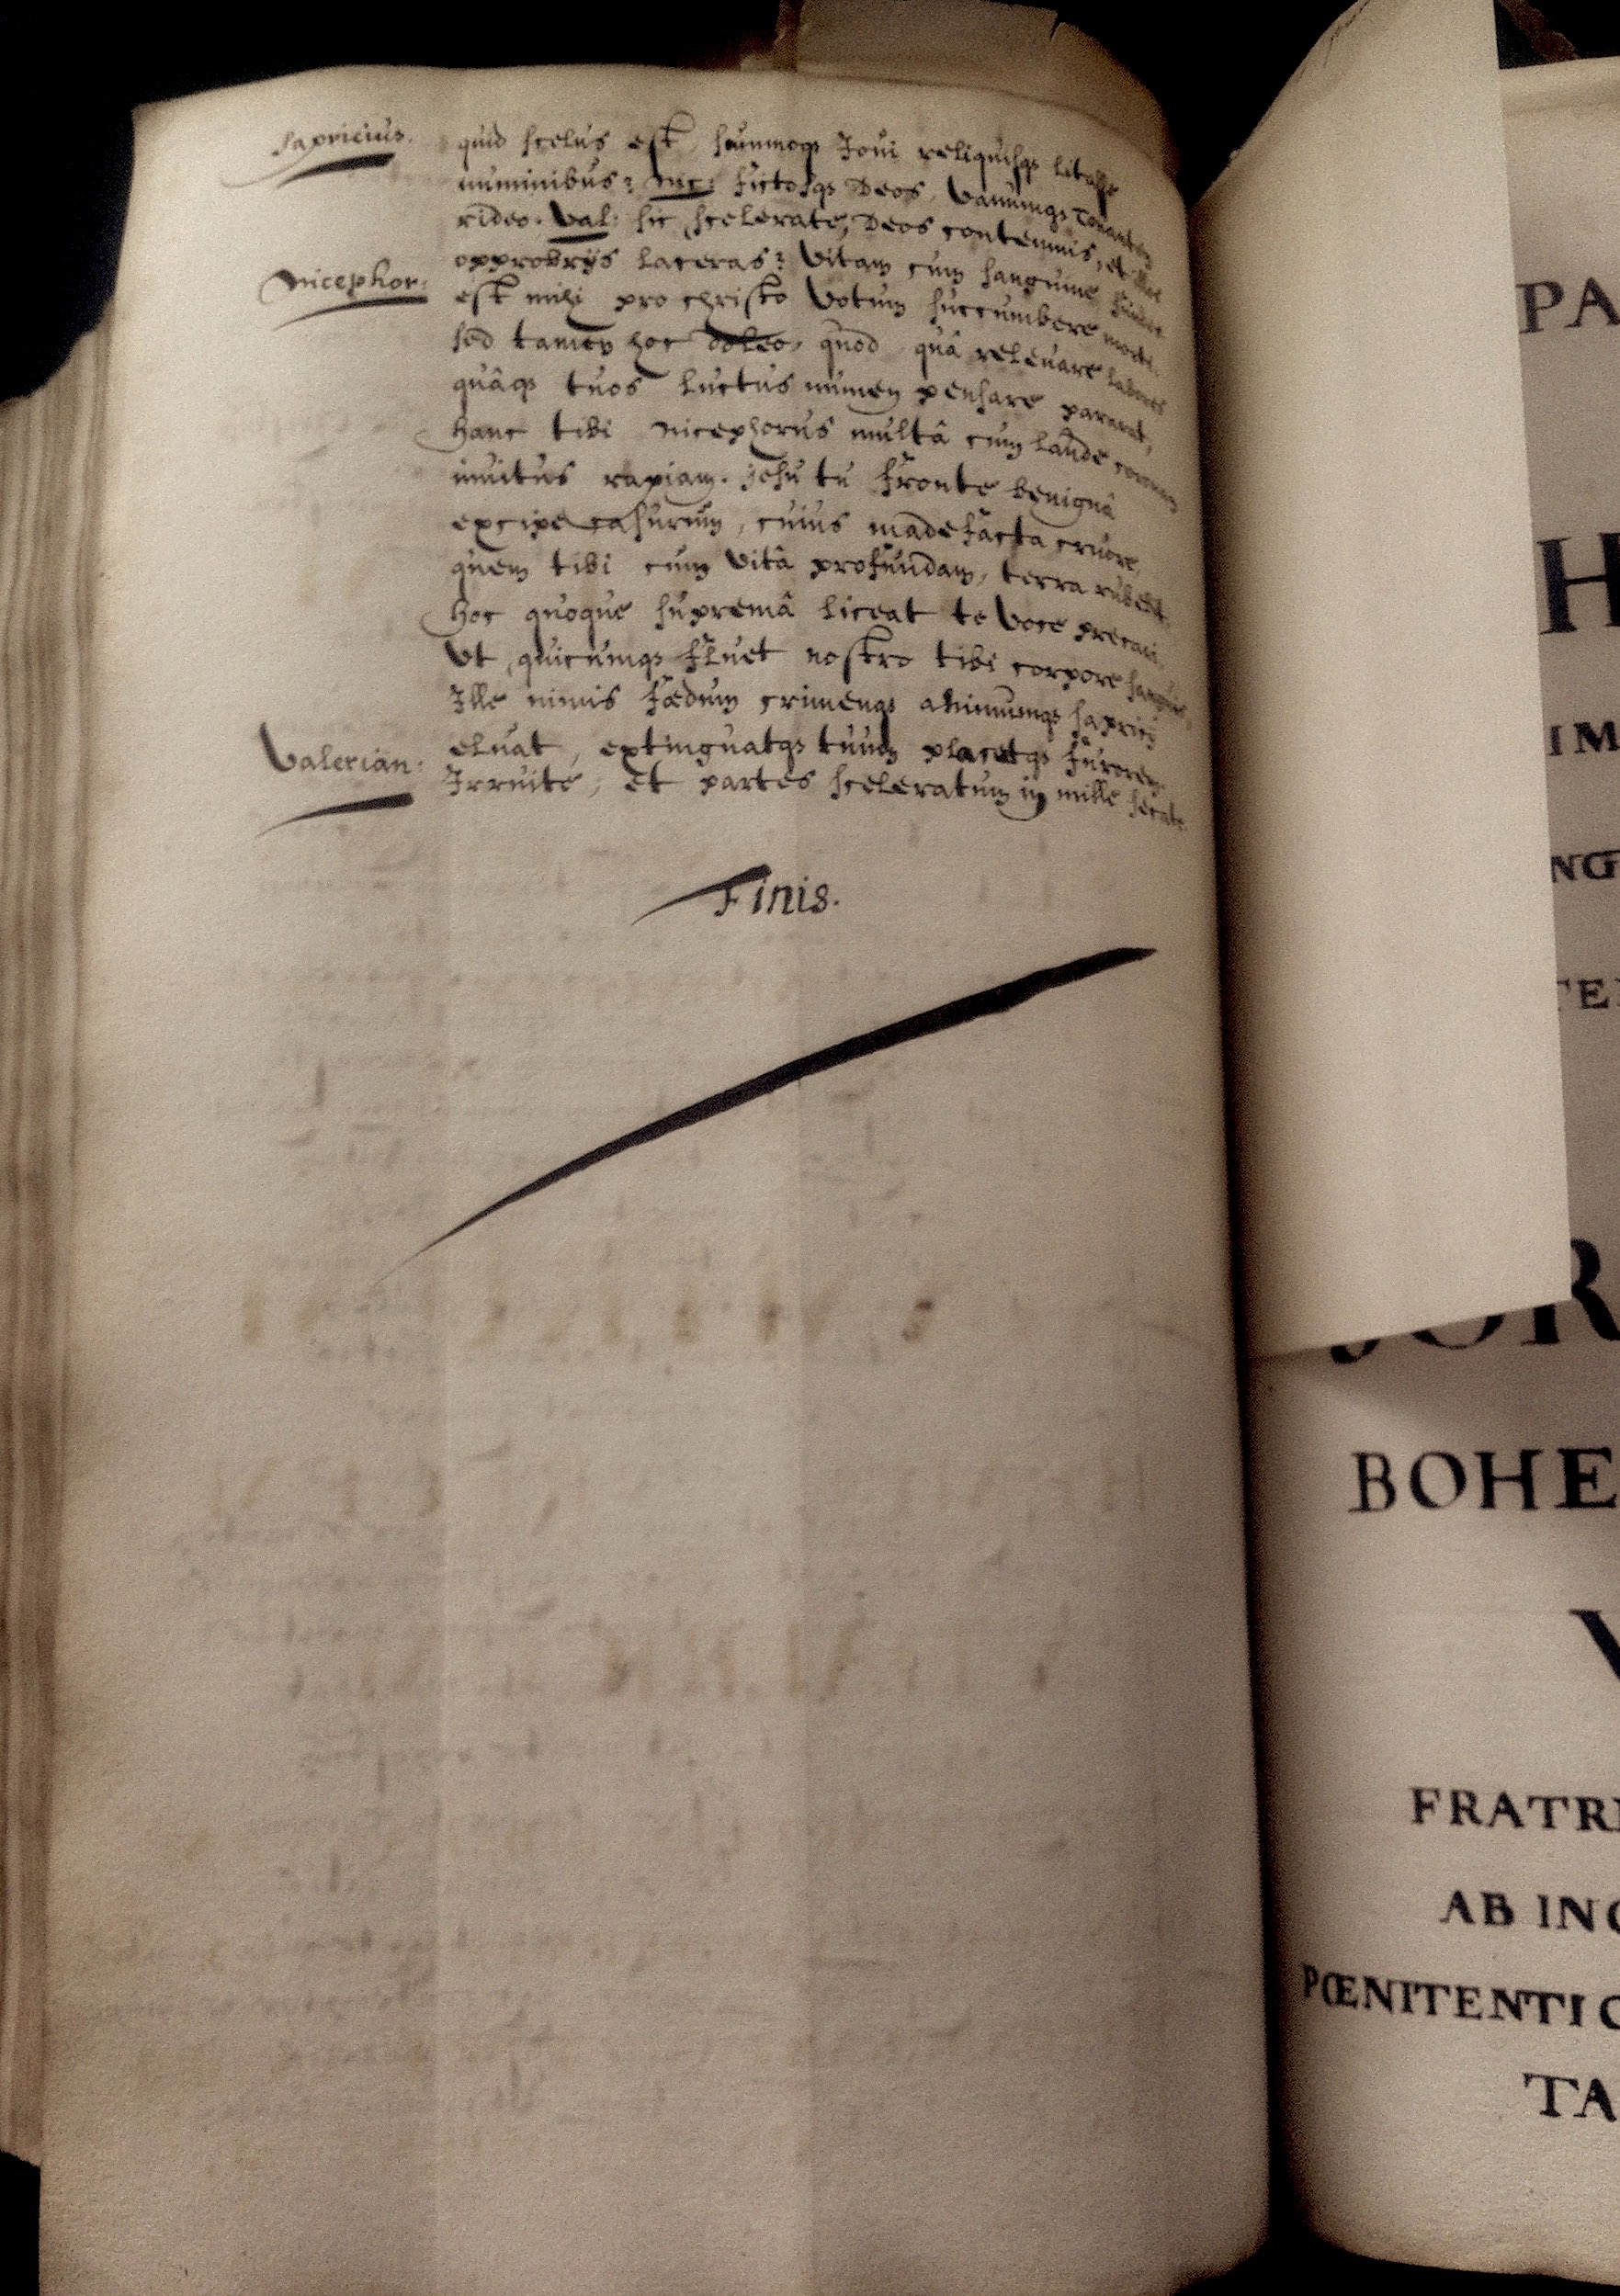 Sapricius. quid scelus est, summoq3 Joui reliquisq3 litasse
numinibus? Nic: fictosq3 Deos, Vanumq3 Tonantem
rideo. Val: sic scelerate, Deos contemnis, et
opprobrijs laceras? Vitam cum sanguine funde
Nicephor: est mihi pro christo Votum succumbere morti.
sed tamen hoc doleo, quod quâ releuare labores
quâq3 tuos luctus numen pensare pararat,
hanc tibi Nicephorus multâ cum laude coronam
inuitus rapiam. Jesu tu fronte benignâ
excipe casurum, cuius madefacta cruore,
quem tibi cum Vitâ profundam, terra rubebit.
hoc quoque supremâ liceat te Voce precari,
Vt, quicumq3 fluet nostro tibi corpore sanguis,
Ille nimis fædum crimenq3 animumq3 sapricij
eluat, extinguatq3 tuum placetq3 furorem.
Valerian: Irruite, et partes sceleratum in mille secate.
Finis.
PA
H
IM
NG
TE
JOR
BOHE
V
FRATRI
AB INC
PŒNITENTI C
TA